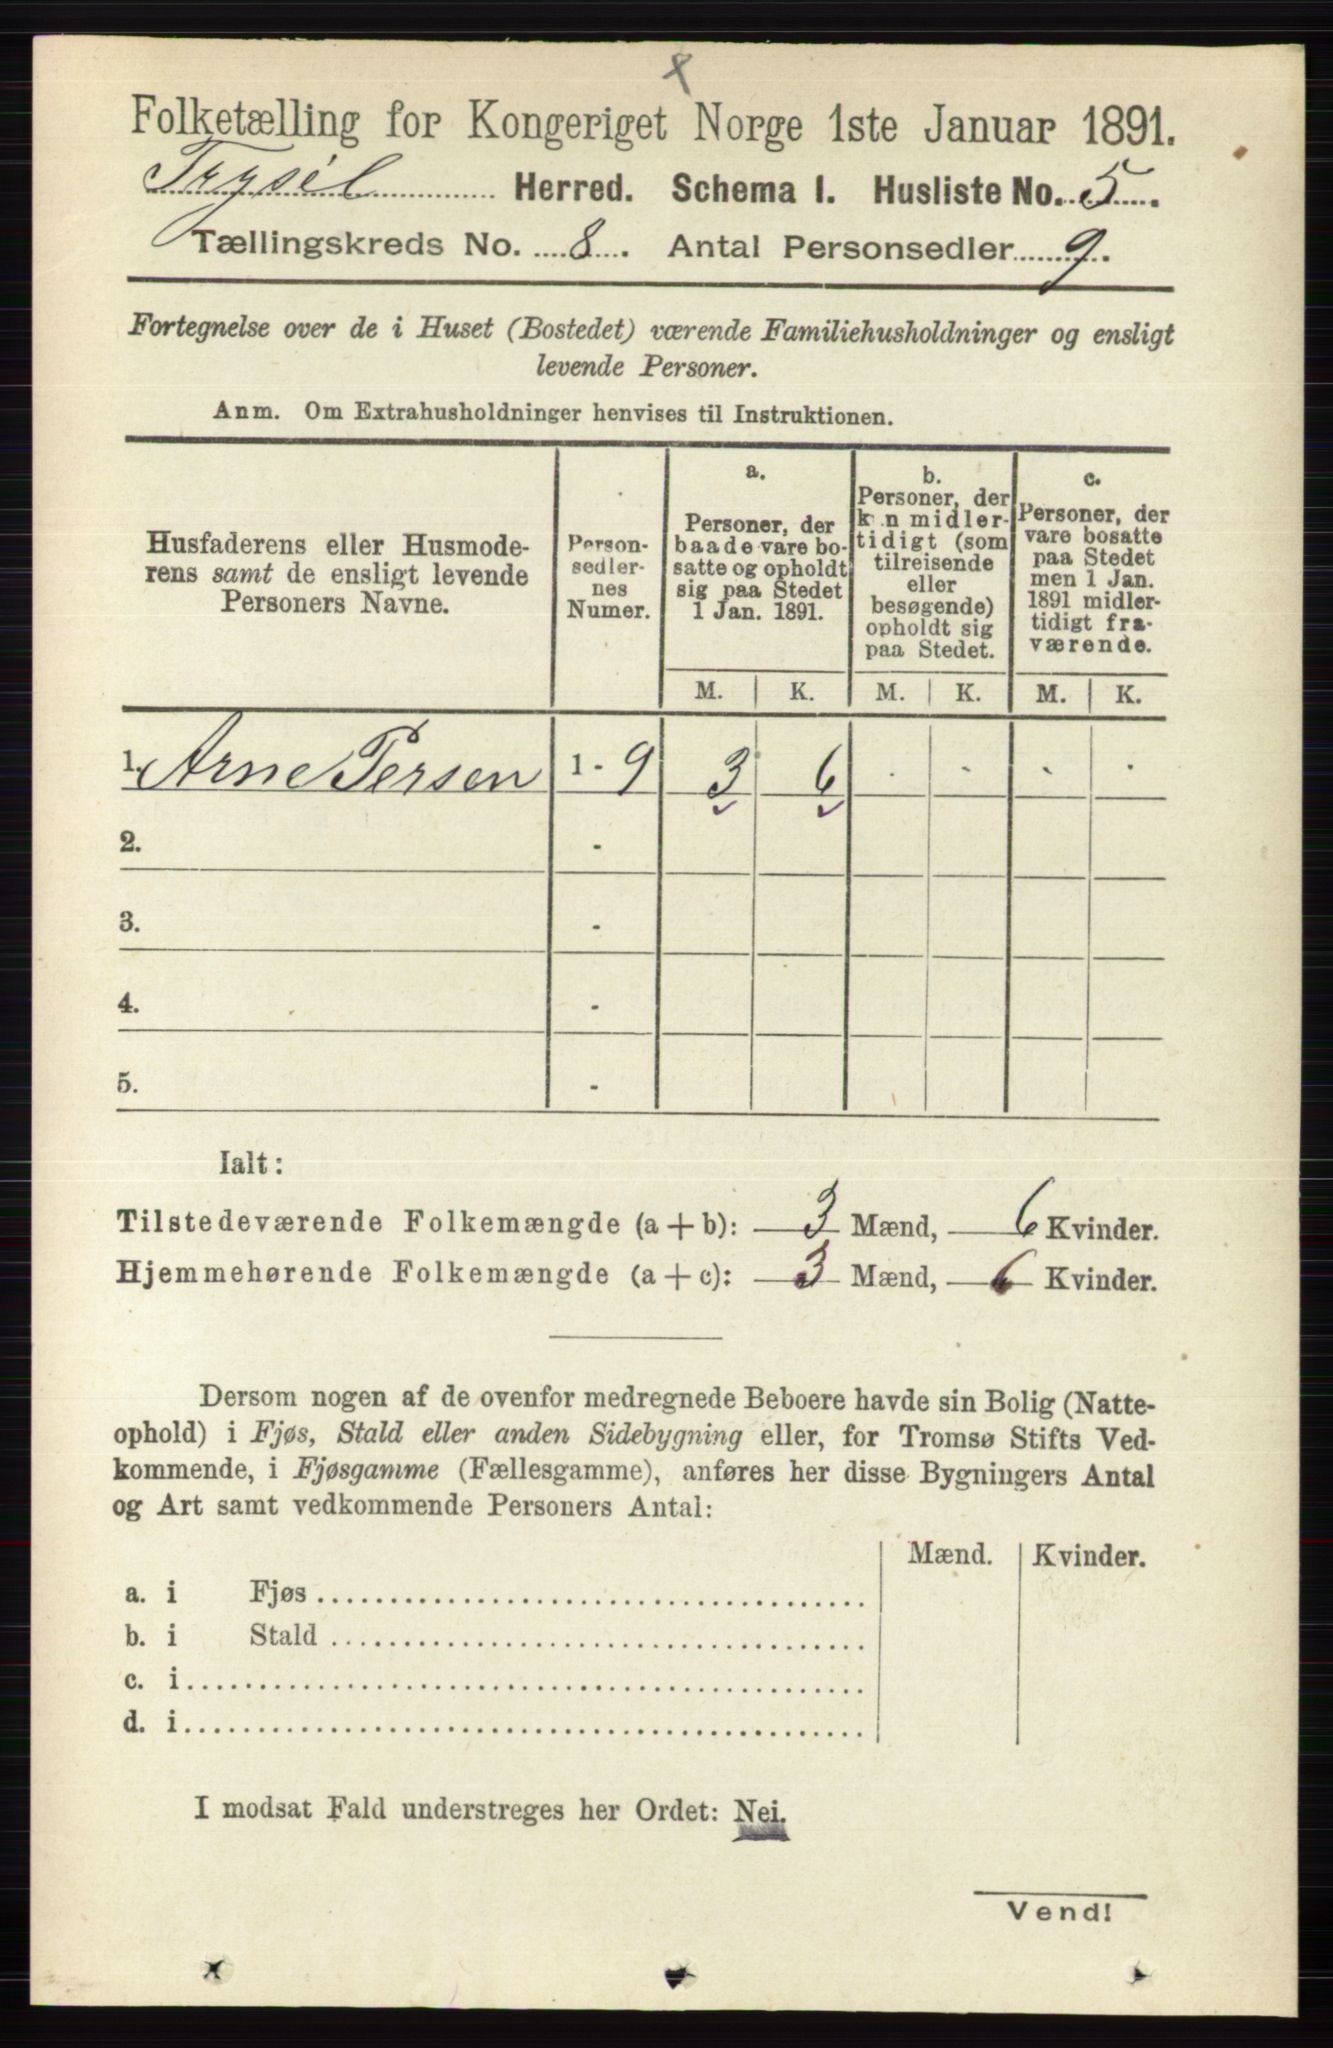 Folketælling for Kongeriget Norge 1ste Januar 1891.
Trysil Herred. Schema I. Husliste No. 5.
Tællingskreds No. 8. Antal Personsedler 9.
Fortegnelse over de i Huset (Bostedet) værende Familiehusholdninger og ensligt
levende Personer.
Anm. Om Extrahusholdninger henvises til Instruktionen.
Husfaderens eller Husmode-
rens samt de ensligt levende
Personers Navne.
Person-
sedler-
nes
Numer.
a.
Personer, der
baade vare bo-
satte og opholdt
sig paa Stedet
1 Jan. 1891.
b.
Personer, der
kun midler-
tidigt (som
tilreisende
eller
besøgende)
opholdt sig
paa Stedet.
c.
Personer, der
vare bosatte
paa Stedet
men 1 Jan.
1891 midler-
tidigt fra-
værende.
M. K. M. K. M. K.
1. Arne Persen 1 - 9 3 6 . - . .
2. -
3. -
4. -
5. -
Ialt:
Tilstedeværende Folkemængde (a + b): 3 Mænd, 6 Kvinder.
Hjemmehørende Folkemængde (a + c): 3 Mænd, 6 Kvinder.
Dersom nogen af de ovenfor medregnede Beboere havde sin Bolig (Natte-
ophold) i Fjøs, Stald eller anden Sidebygning eller, for Tromsø Stifts Ved-
kommende, i Fjøsgamme (Fællesgamme), anføres her disse Bygningers Antal
og Art samt vedkommende Personers Antal:
Mænd. Kvinder.
a. i Fjøs
b. i Stald
c. i
d. i
I modsat Fald understreges her Ordet: Nei.
Vend!